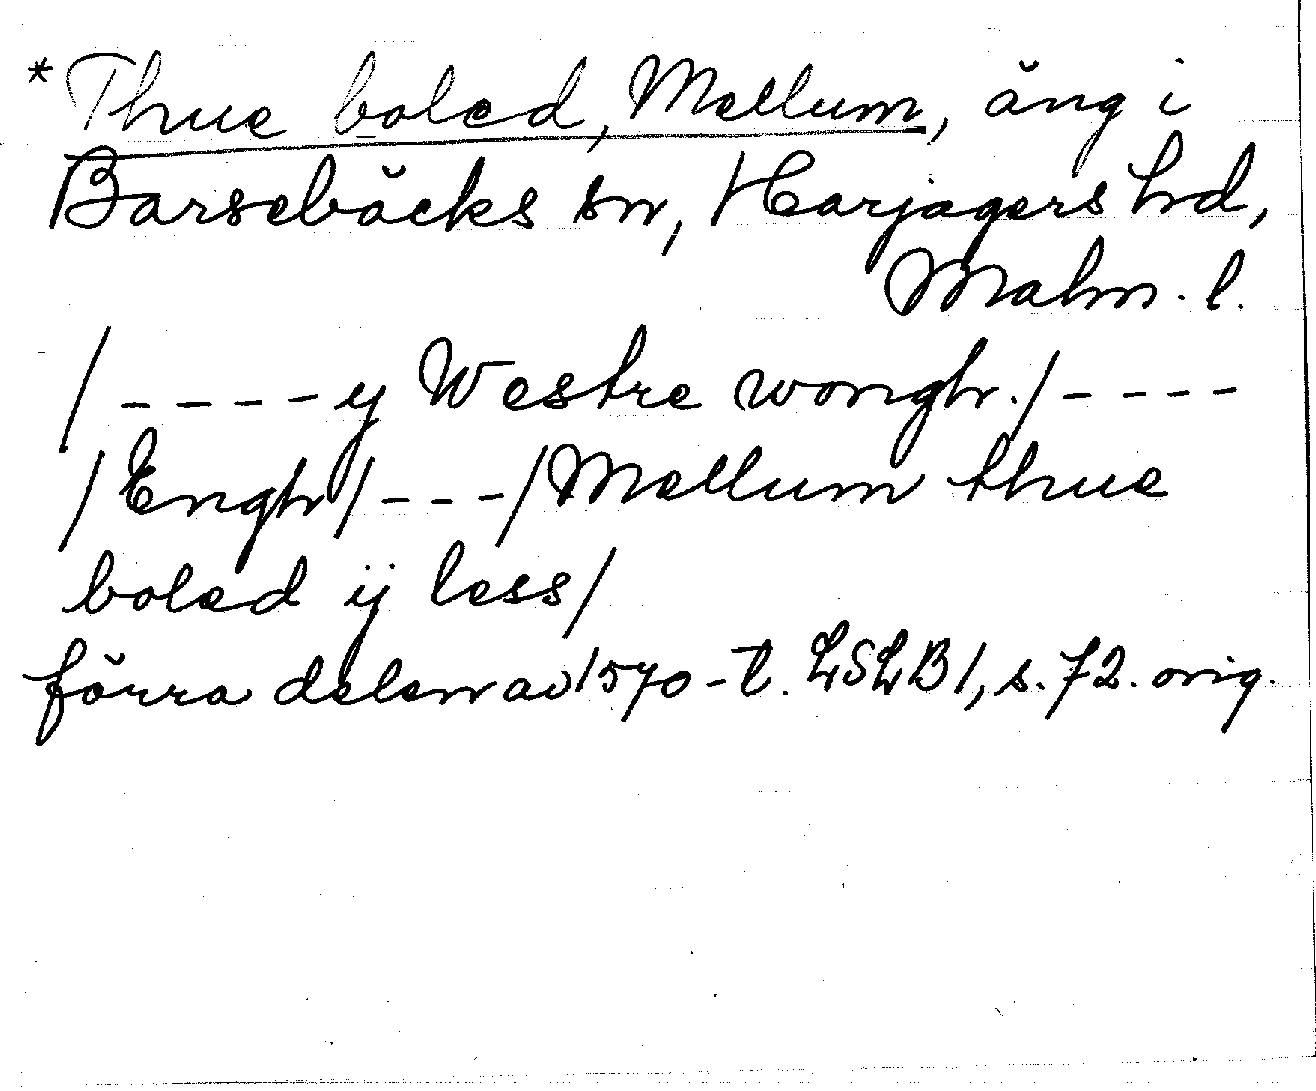 *Thue boled, Mellum, äng i
Barsebäcks sn, Harjagers hd,
Malm. l.
/ - - - - y Westre wongh./ - - - -
/Engh/ - - - /Mellum thue
boled ij less/
förra delen av 1570-t. LSLB1, s. 72. orig.